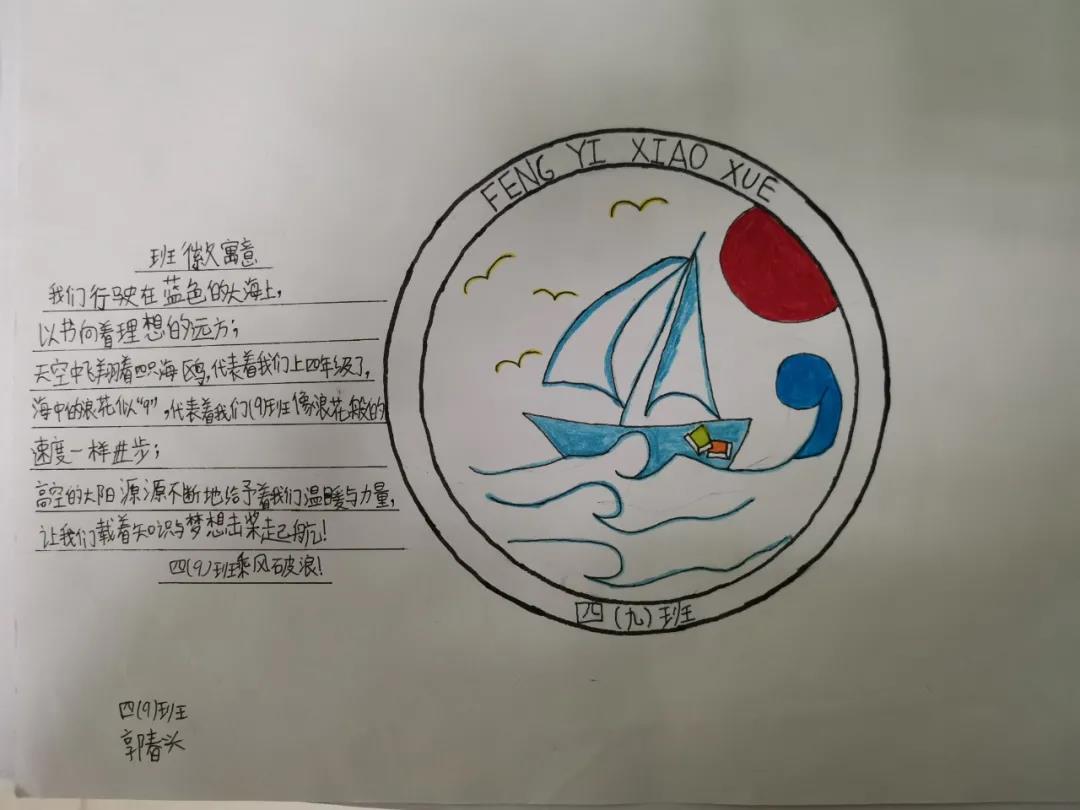 FENG YI XIAO XUE
班徽寓意
我们行驶在蓝色的大海上,
以书向着理想的远方;
天空中飞翔着四只海鸥,代表着我们上四年级了,
海中的浪花似“9”,代表着我们(9)班像浪花般的
速度一样进步;
高空的太阳源源不断地给予着我们温暖与力量,
让我们载着知识与梦想击桨起航!
四(9)班乘风破浪!
四(九)班
四(9)班